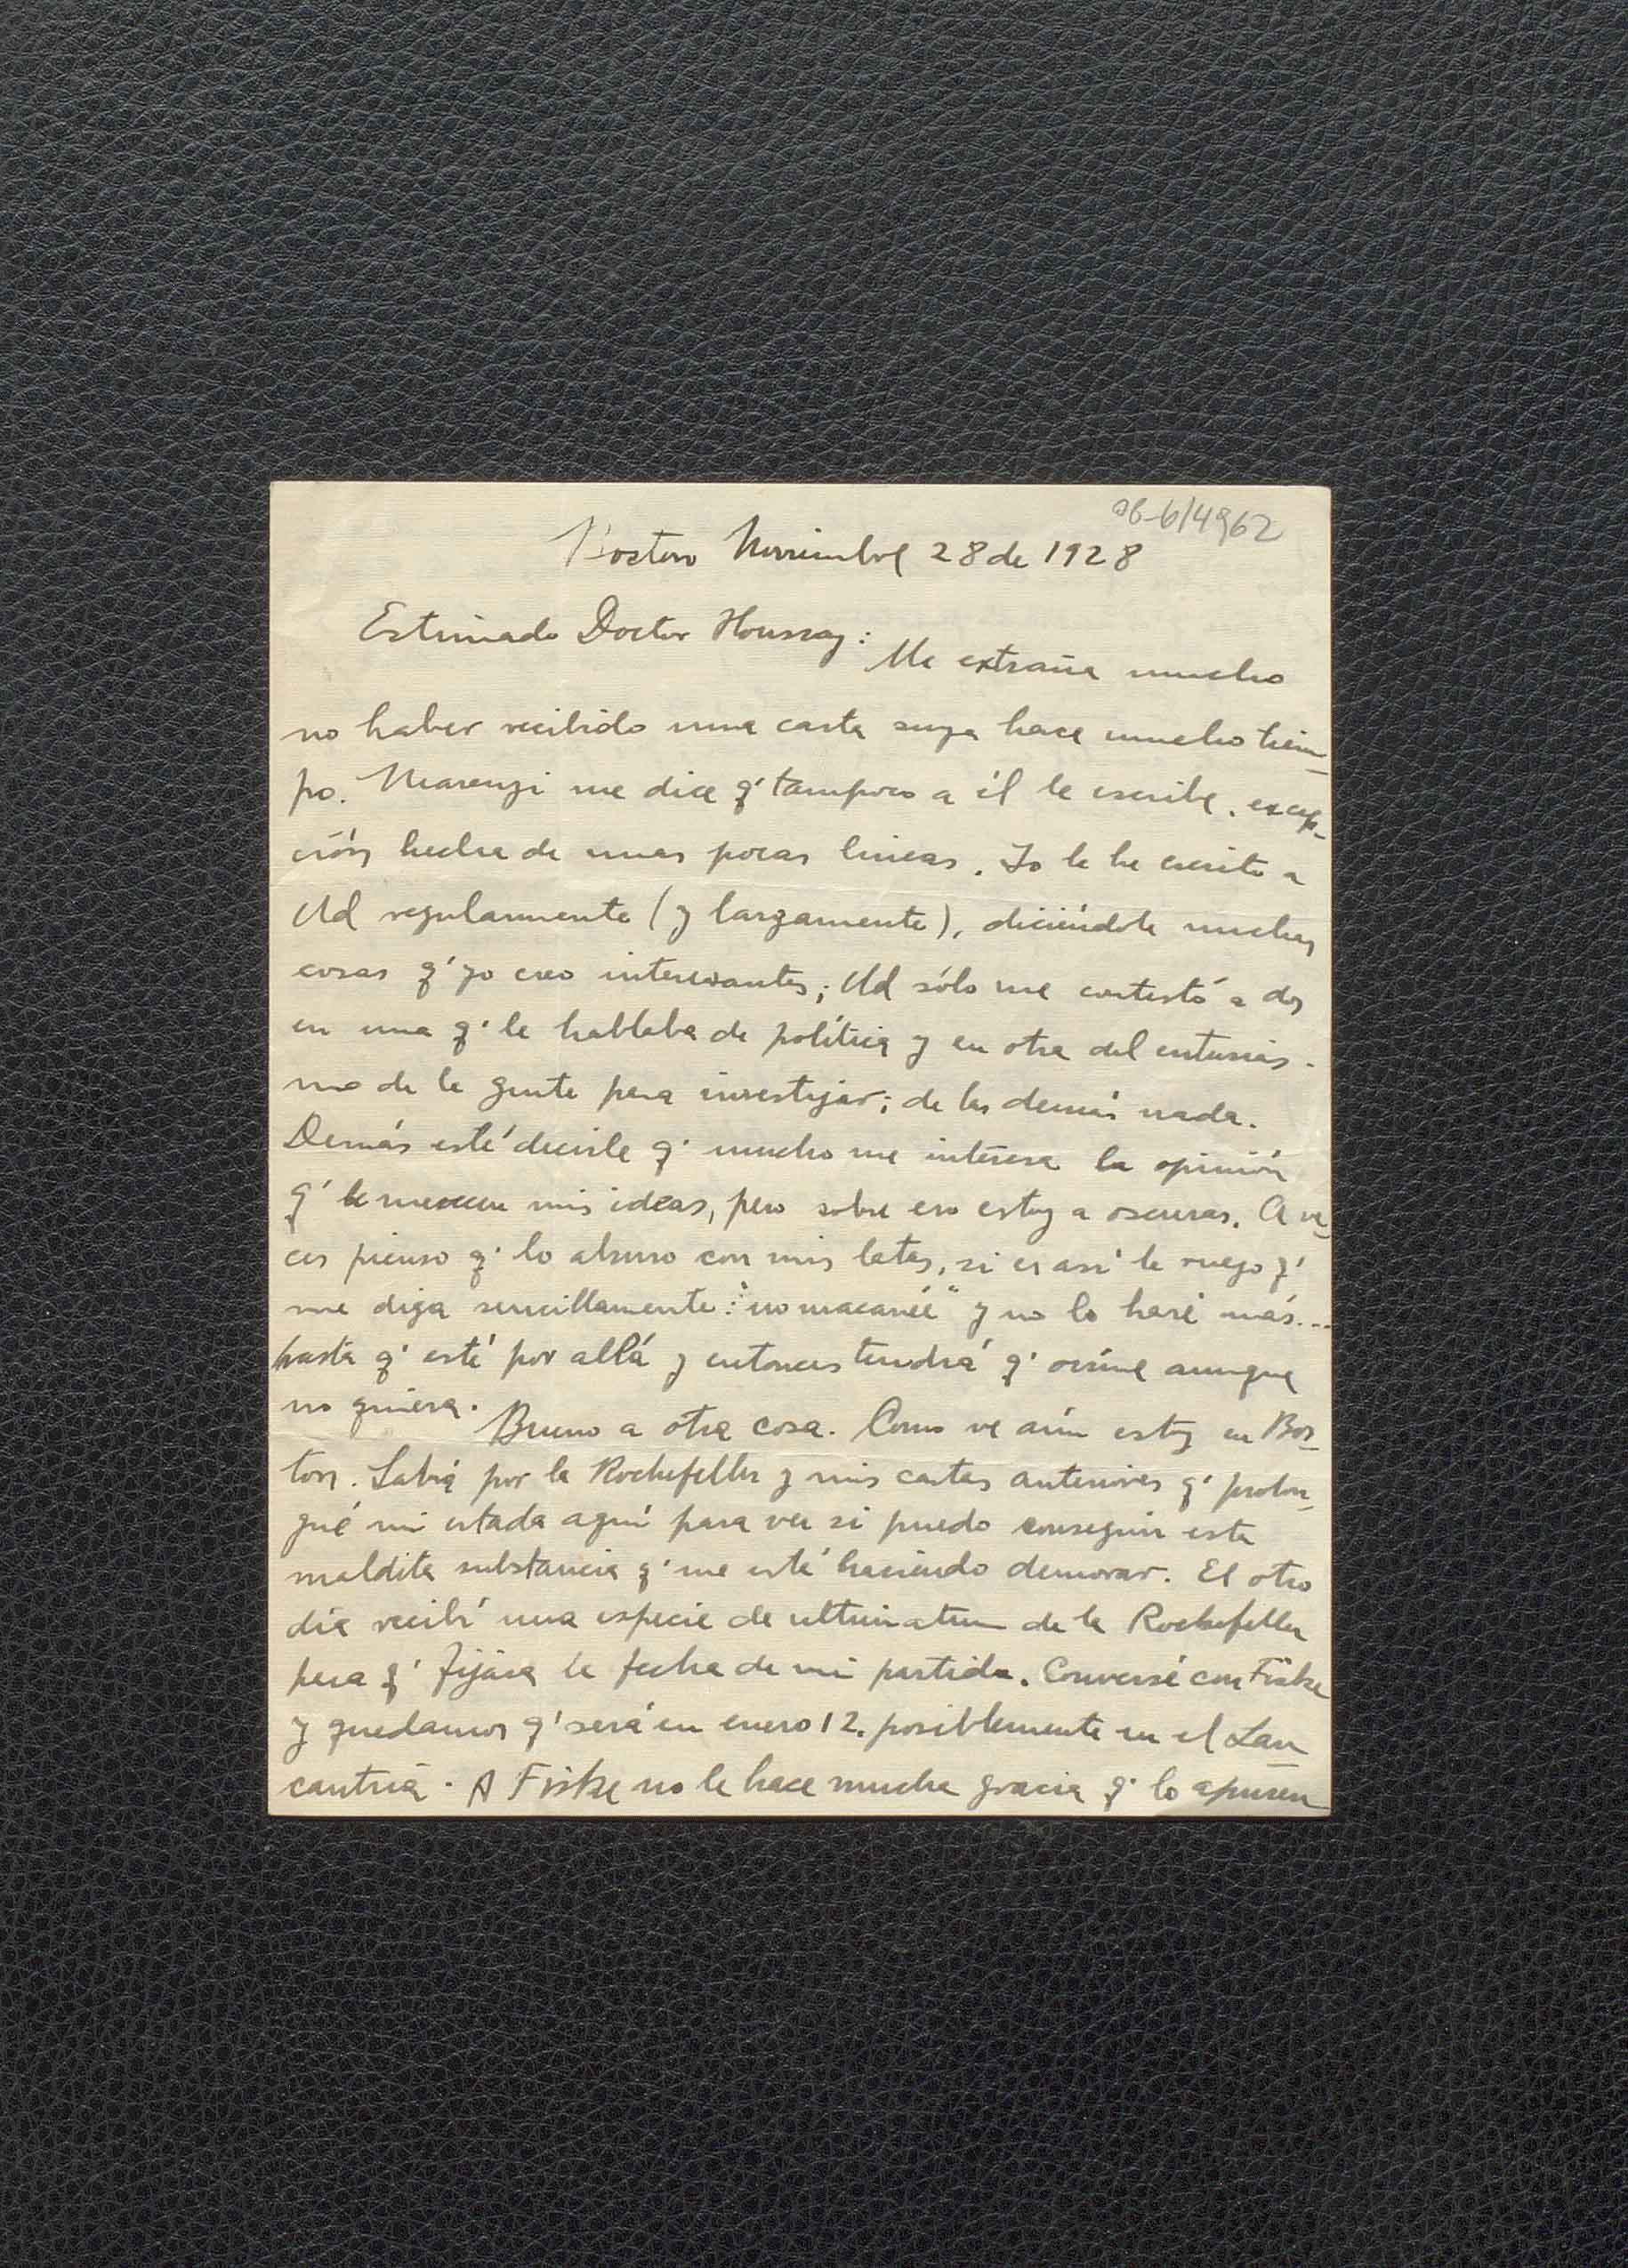 06-6/4962
Boston Noviembre 28 de 1928
Estimado Doctor Houssay:
Me extraña mucho
no haber recibido una carta suya hace mucho tiem-
po. Marenzi me dice q' tampoco a él le escribe, excep-
ción hecha de unas pocas lineas. Yo le he escrito a
Ud regularmente (y largamente), diciéndole muchas
cosas q' yo creo interesantes; Ud sólo me contestó a dos
en una q' le hablaba de política y en otra del entusias-
mo de la gente para investigar; de las demás nada.
Demás está decirle q' mucho me interesa la opinión
q' le merecen mis ideas, pero sobre eso estoy a oscuras. A ve-
ces pienso q' lo aburro con mis latas, si es así le ruego q'
me diga sencillamente: "no macanée" y no lo haré más...
hasta q' esté por allá y entonces tendrá q' oírme aunque
no quiera.
Bueno a otra cosa. Como ve aún estoy en Bos-
ton. Sabrá por la Rockefeller y mis cartas anteriores q' prolon-
gué mi estada aquí para ver si puedo conseguir esta
maldita substancia q' me está haciendo demorar. El otro
día recibí una especie de ultimatum de la Rockefeller
para q' fijára la fecha de mi partida. Conversé con Fiske
y quedamos q' será en enero 12, posiblemente en el Lan
castria. A Fiske no le hace mucha gracia q' lo apuren